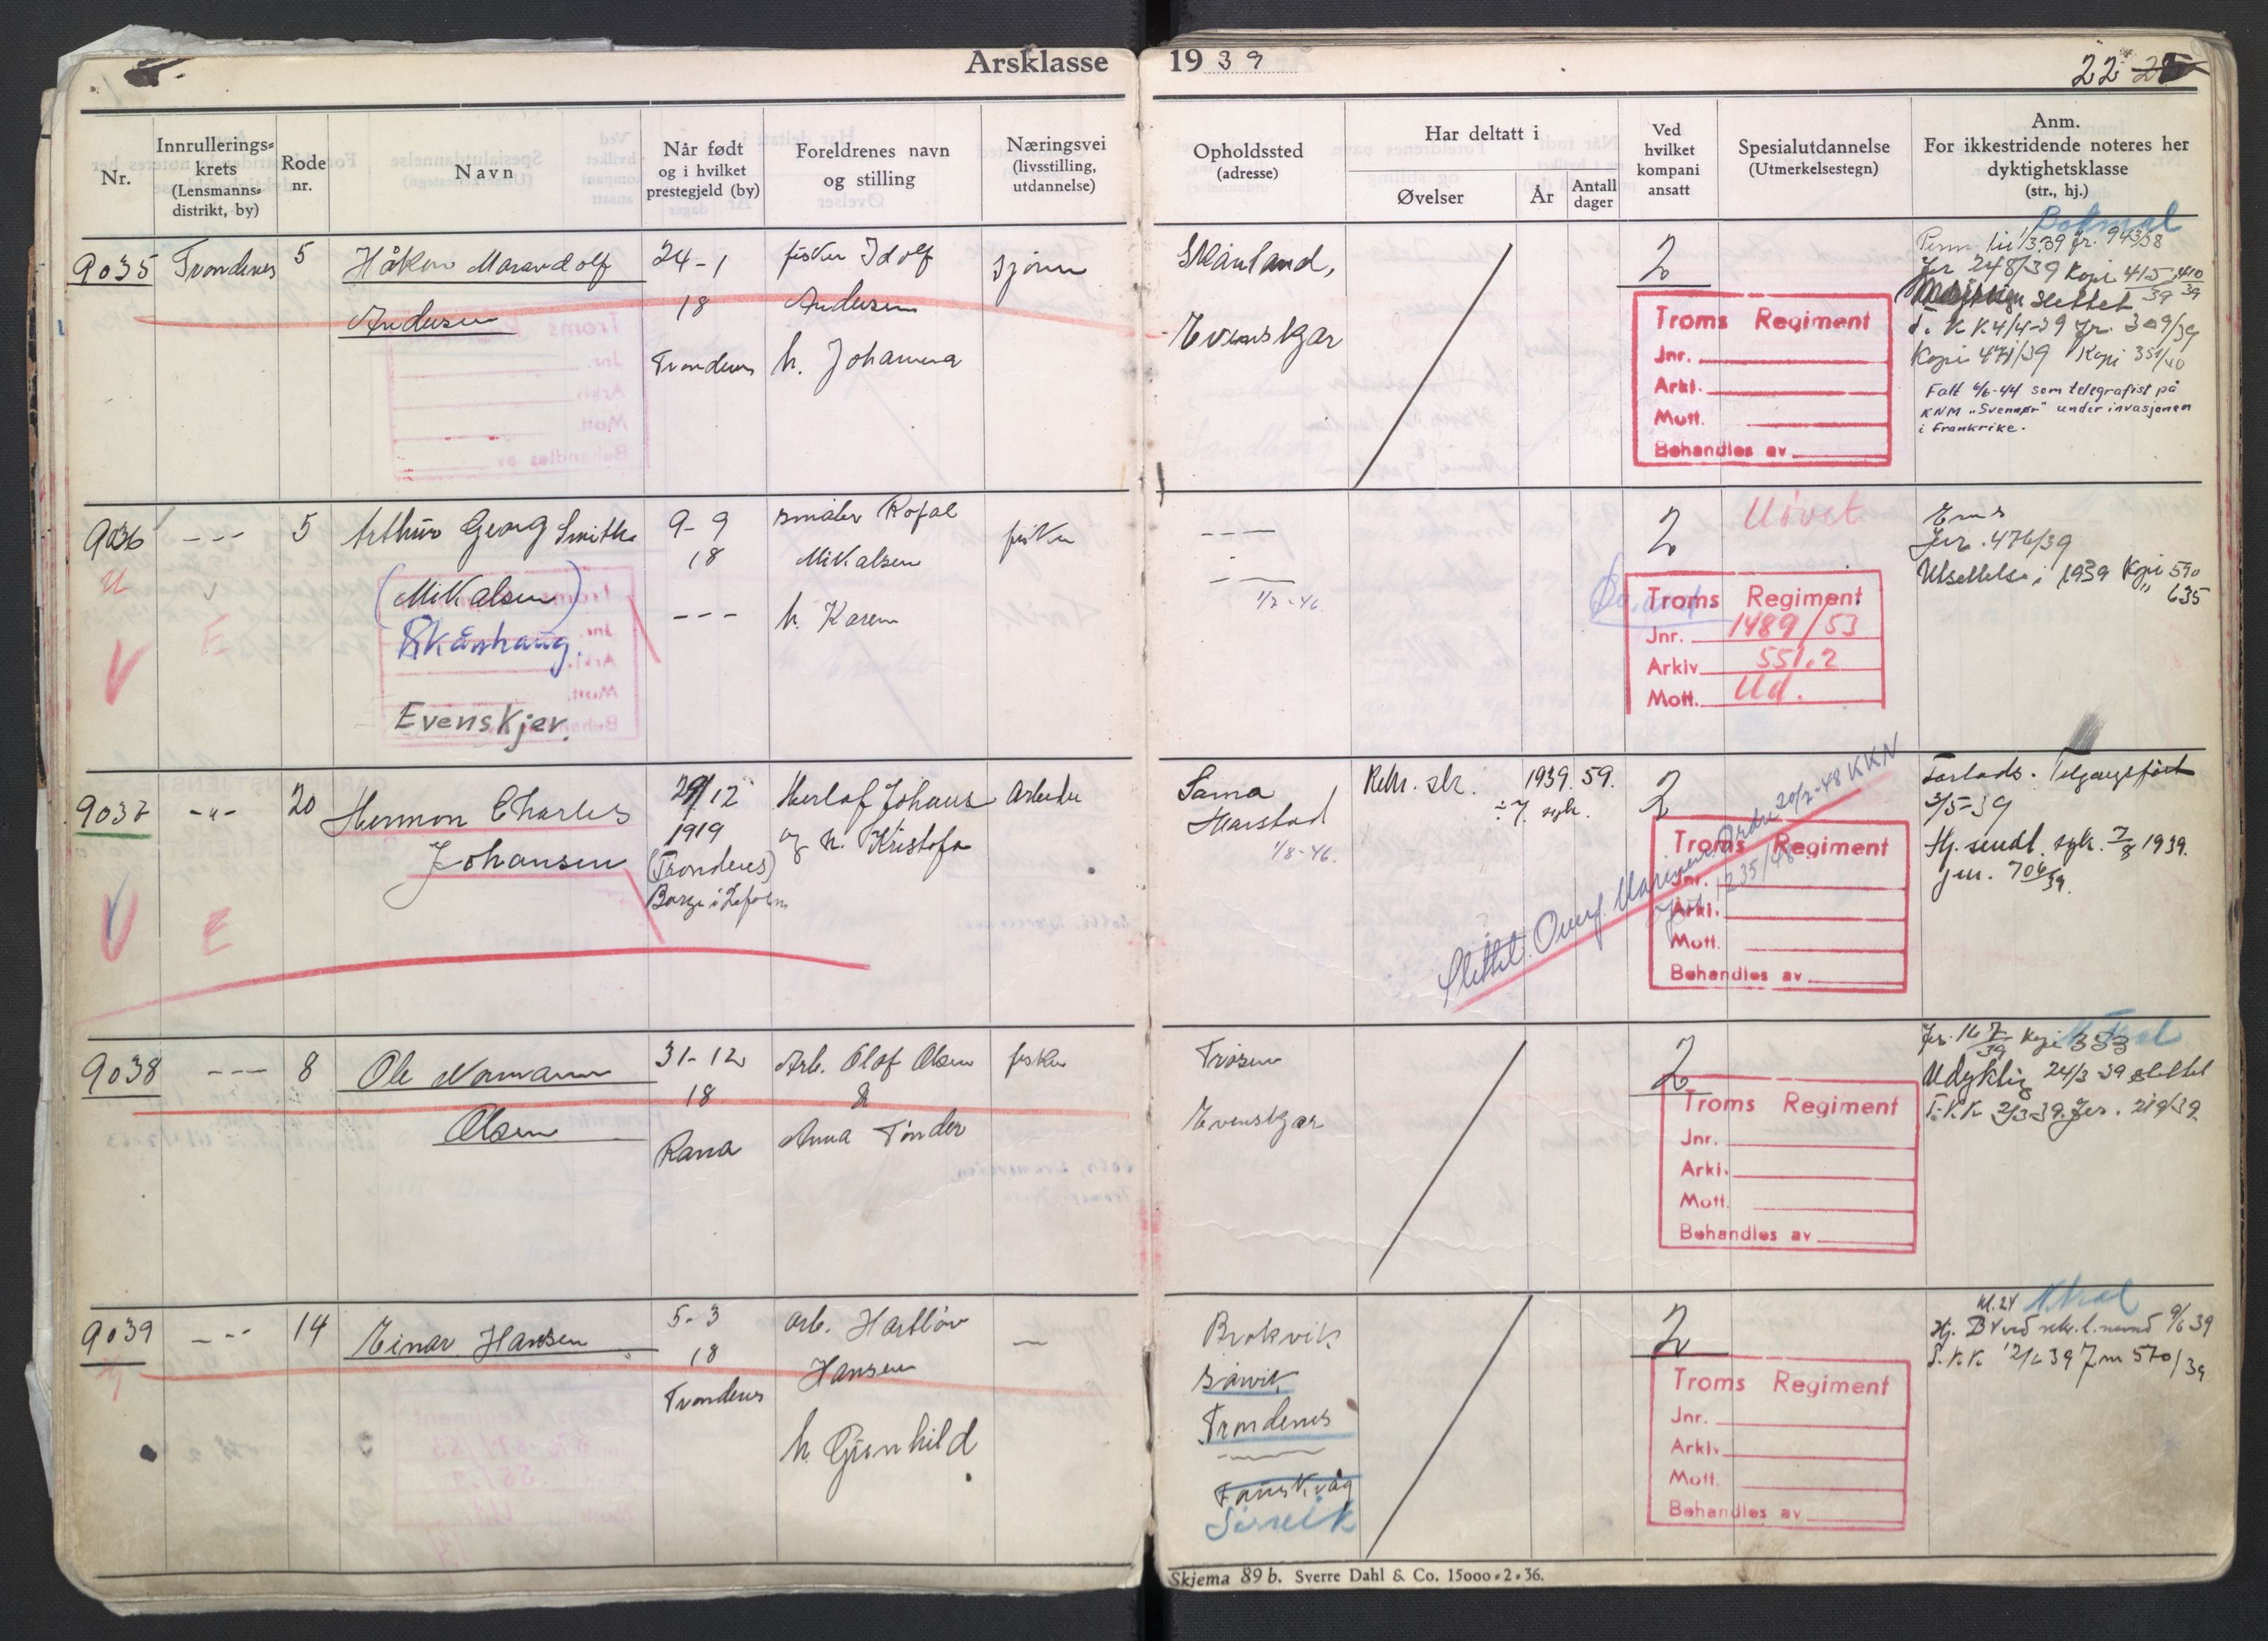 Årsklasse 19 39
22
Nr.
Innrullerings-
krets
(Lensmanns-
distrikt, by)
Rode
nr.
Navn
Når født
og i hvilket
prestegjeld (by)
Foreldrenes navn
og stilling
Næringsvei
(livsstilling,
utdannelse)
Opholdssted
(adresse)
Har deltatt i
Øvelser
År
Antall
dager
Ved
hvilket
kompani
ansatt
Spesialutdannelse
(Utmerkelsestegn)
Anm.
For ikkestridende noteres her
dyktighetsklasse
(str., hj.)
9035
Trondenes
5
Håkon Marandolf
Andersen
24-1
18
Trondenes
fisker Idolf
Andersen
h. Johanna
sjømn
Skånland,
Evenskjær
2
Troms Regiment
Jnr.
Arki.
Mott.
Behandles av
Perm. til 1/3.39 Jr. 943/38
Jr 248/39 Kopi 415, 410
39 39
slettet
T. K K 4/4-39 Jr. 309/39
Kopi 471/39 Kopi 351/40
Falt 6/6-44 som telegrafist på
KNM "Svenner" under invasjonen
i Frankrike.
9036
---
5
Arthur Georg Smith
(Mikalsen)
Skånhaug.
Evenskjer.
9-9
18
---
småbr Rofal
Mikalsen
h. Karen
fisker
---
1/7-46.
2
Uøvet
Troms Regiment
Jnr. 1489/53
Arkiv 551.2
Mott. Ud.
Jnr. 476/39
Utsettelse i 1939 Kopi 590
" 635
U
V
E
9037
-"-
20
Hermon Charles
Johansen
29/12
1919
(Trondenes)
Herlof Johans
og h. Kristofa
Arbeider
Sama
Harstad
1/8-46.
Rekr. sk.
1939. 59.
÷ 7. syk.
2
Slettet. Overf. Marinen. Ordre 20/2-48 KKN
Jnr. 1235/48
Troms Regiment
Jnr.
Arki.
Mott.
Behandles av
3/5-39
Hj. sendt. syk. 7/8 1939.
jnr. 706/39.
V
E
9038
---
8
Ole Normann
Olsen
31-12
18
Rana
Arb. Olaf Olsen
&
Anna Tønder
fisker
Trøsen
Evenskjær
2
Troms Regiment
Jnr.
Arki.
Mott.
Behandles av
Jr. 167/39 Kopi 353
Udyktig 24/3-39 slettet
T.K.K 2/3-39. Jnr. 219/39
9039
---
14
Einar Hansen
5-3
18
Trondenes
arb. Hartløv
Hansen
h. Gunhild
—
Brokvik
Sørvik
Trondenes
Fauskvåg
Sørvik
2
Troms Regiment
Jnr.
Arki.
Mott.
Behandles av
kl. 24
Hj. BV ved rekr. l. nemnd 9/6 39
T.K K 12/6 39 Jnr 570/39
Skjema 89 b. Sverre Dahl & Co. 15000-2-36.